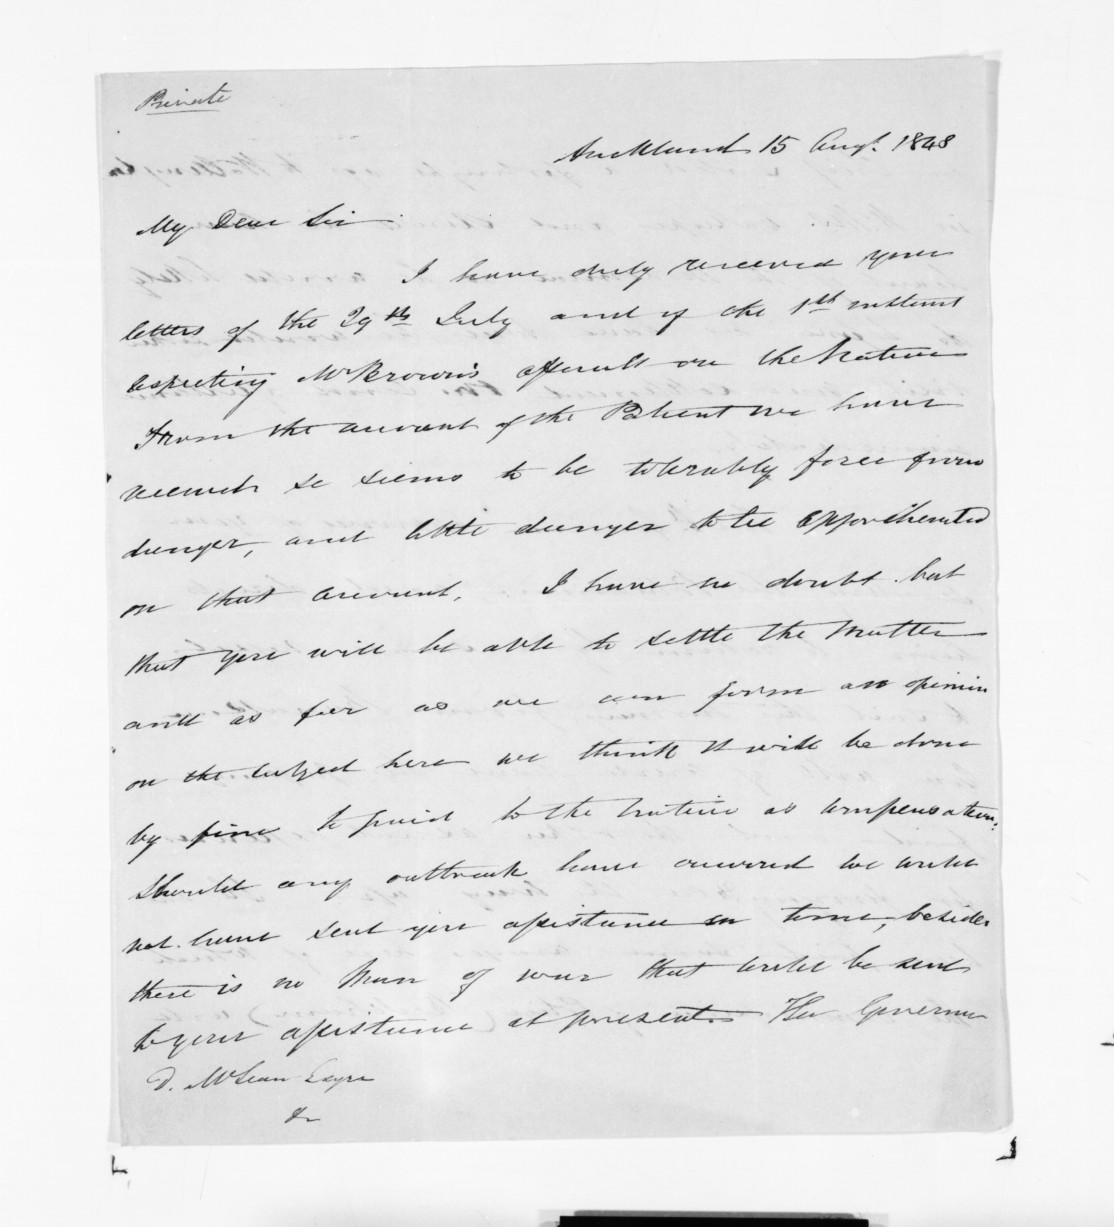 Private
Auckland 15 Augt. 1848
My Dear Sir
I have duly received your
letters of the 29th July and of the 1st instant
respecting Mr Brown's assault on the Native
From the account of the Patient we have
received he seems to be tolerably free from
danger, and little danger to be apprehended
on that account. I have no doubt but
that you will be able to settle the matter
and as far as we can form an opinion
on the subject here we think it will be done
by fine & paid to the Native as compensation.
Should any outbreak have occurred we could
not have sent you assistance in time, besides
there is no Man of war that could be sent
to your assistance at present. The Governor
D. McLean Esqre
&c